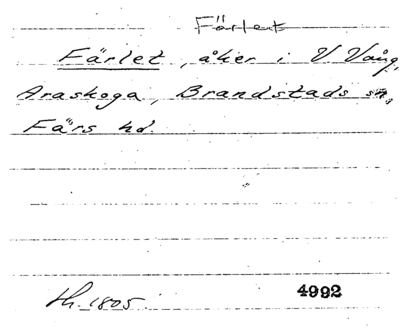 Färlet
Färlet, åker i V Vång,
Araskoga, Brandstads sn,
Färs hd.
lh. 1805 4992